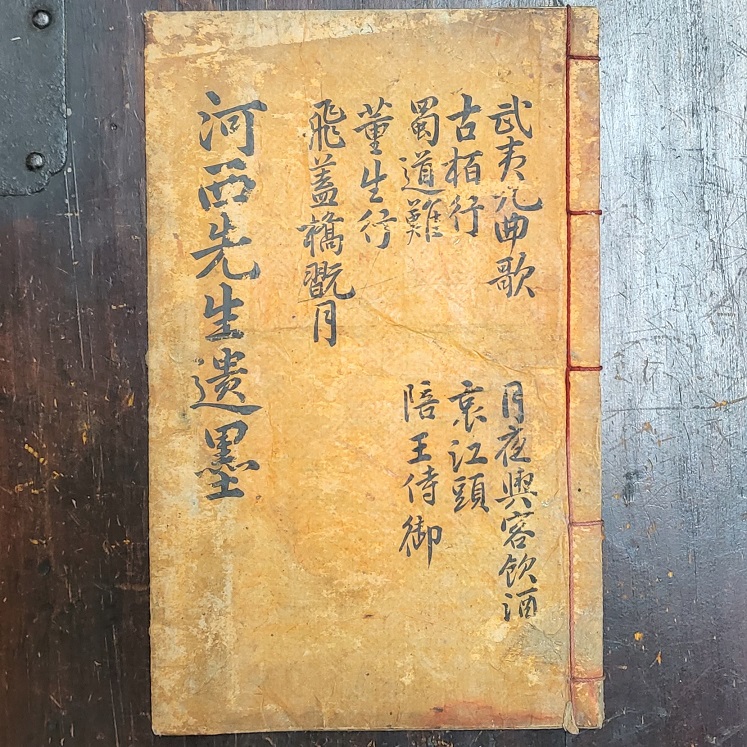 武夷九曲歌
古栢行
蜀道難
董生行
飛蓋橋翫月
月夜與客飲酒
哀江頭
陪王侍御
河西先生遺墨